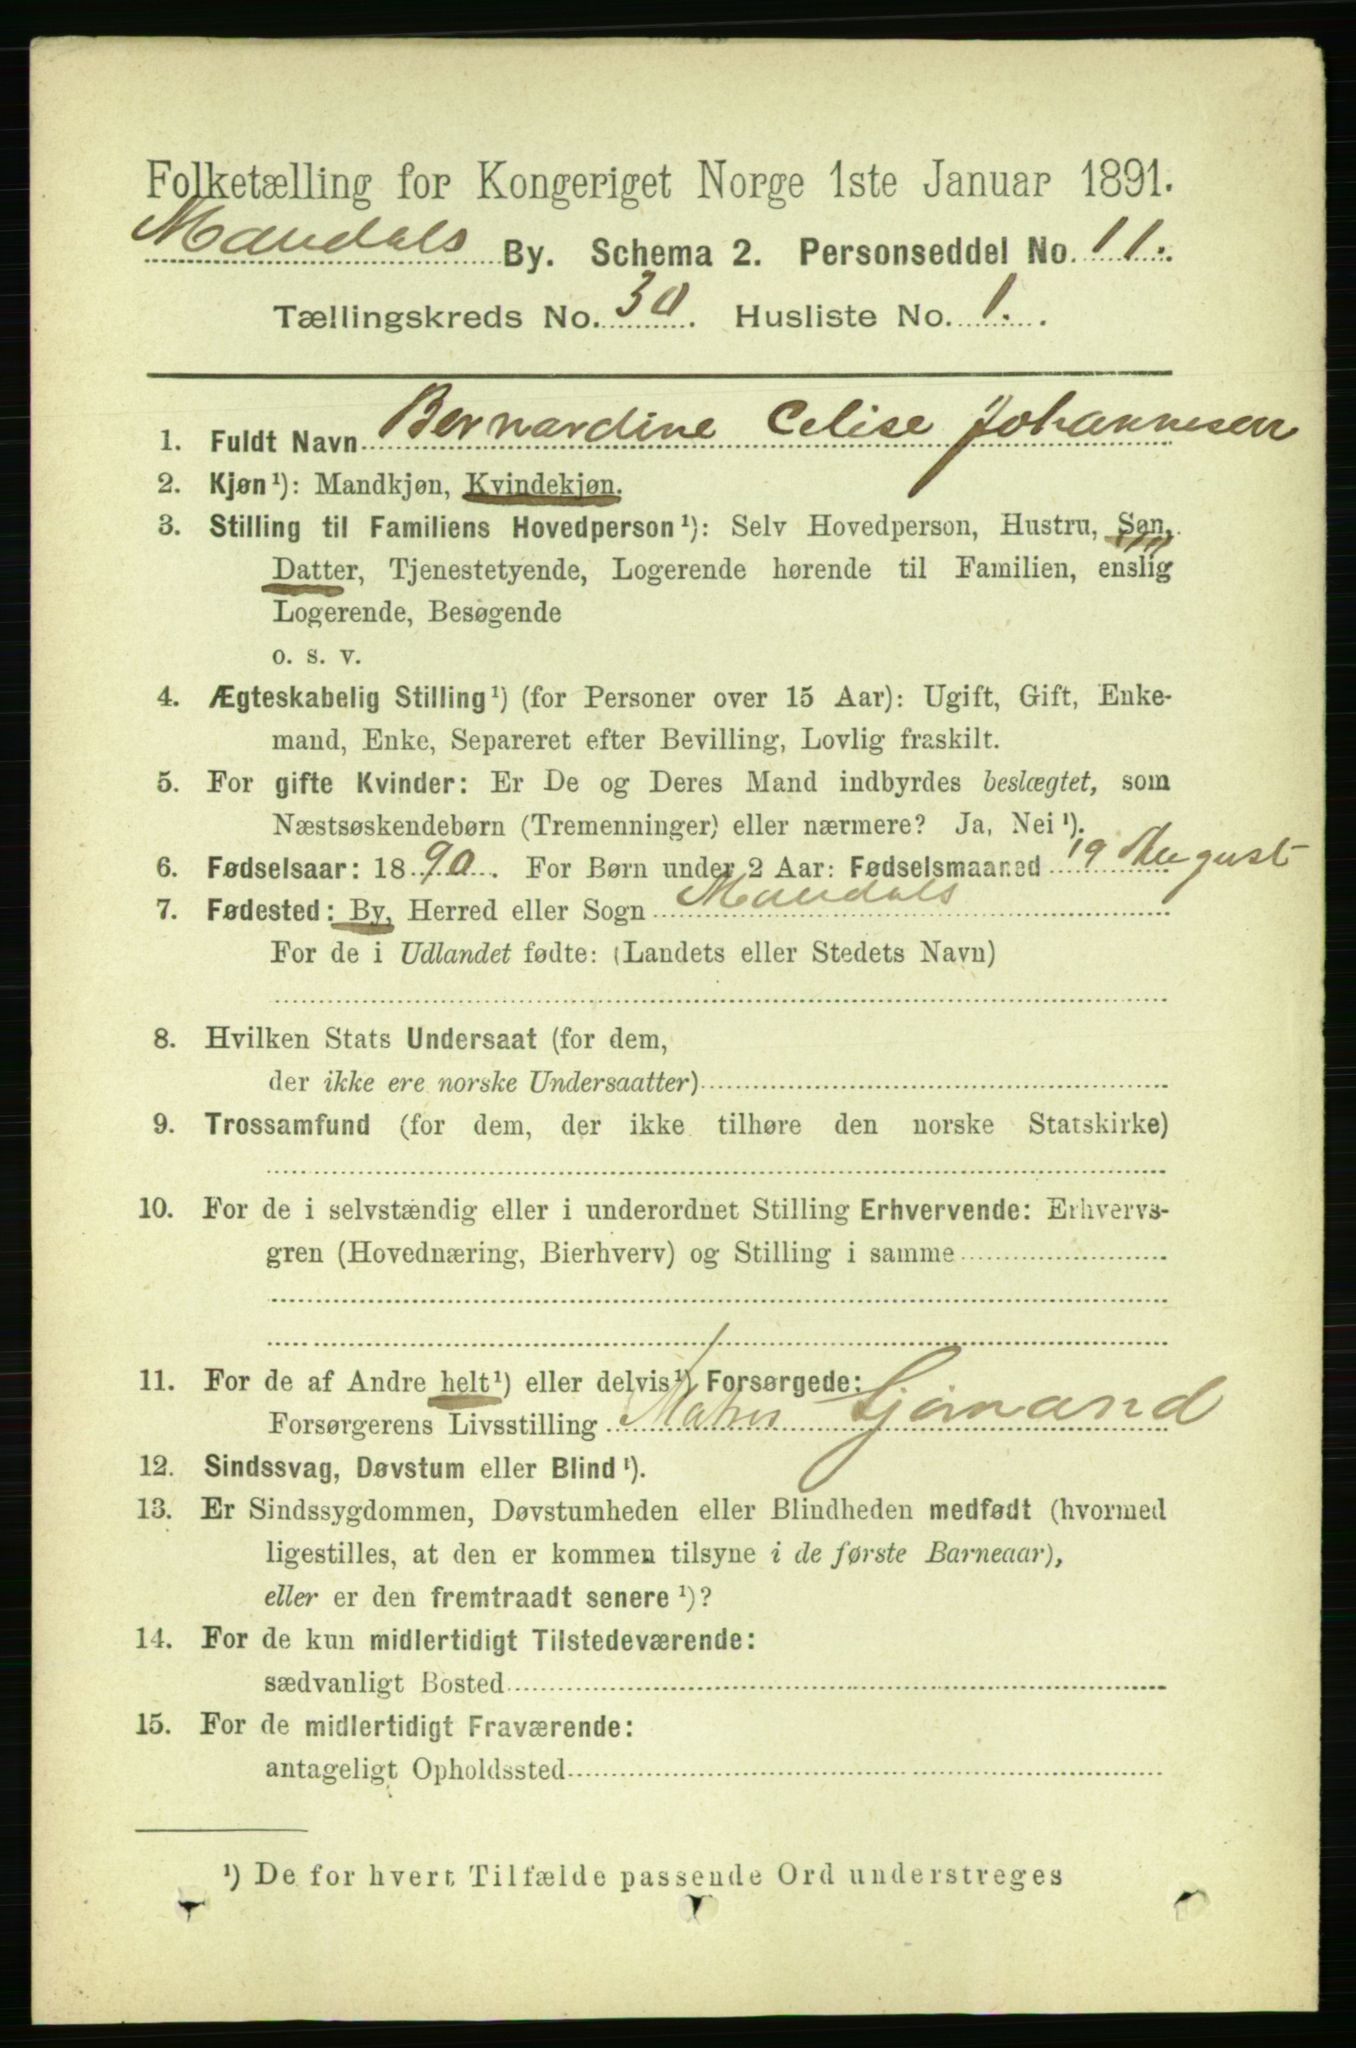 Folketælling for Kongeriget Norge 1ste Januar 1891.
Mandals By. Schema 2. Personseddel No. 11.
Tællingskreds No. 30. Husliste No. 1.
1. Fuldt Navn Bernardine Celise Johannesen
2. Kjøn¹): Mandkjøn, Kvindekjøn.
3. Stilling til Familiens Hovedperson¹): Selv Hovedperson, Hustru, Søn,
Datter, Tjenestetyende, Logerende hørende til Familien, enslig
Logerende, Besøgende
o. s. v.
4. Ægteskabelig Stilling¹) (for Personer over 15 Aar): Ugift, Gift, Enke-
mand, Enke, Separeret efter Bevilling, Lovlig fraskilt.
5. For gifte Kvinder: Er De og Deres Mand indbyrdes beslægtet, som
Næstsøskendebørn (Tremenninger) eller nærmere? Ja, Nei¹).
6. Fødselsaar: 1890. For Børn under 2 Aar: Fødselsmaaned 19 August
7. Fødested: By, Herred eller Sogn Mandals
For de i Udlandet fødte: (Landets eller Stedets Navn)
8. Hvilken Stats Undersaat (for dem,
der ikke ere norske Undersaatter)
9. Trossamfund (for dem, der ikke tilhøre den norske Statskirke)
10. For de i selvstændig eller i underordnet Stilling Erhvervende: Erhvervs-
gren (Hovednæring, Bierhverv) og Stilling i samme
11. For de af Andre helt¹) eller delvis¹) Forsørgede:
Forsørgerens Livsstilling Sjømand
12. Sindssvag, Døvstum eller Blind¹).
13. Er Sindssygdommen, Døvstumheden eller Blindheden medfødt (hvormed
ligestilles, at den er kommen tilsyne i de første Barneaar),
eller er den fremtraadt senere¹)?
14. For de kun midlertidigt Tilstedeværende:
sædvanligt Bosted
15. For de midlertidigt Fraværende:
antageligt Opholdssted
¹) De for hvert Tilfælde passende Ord understreges